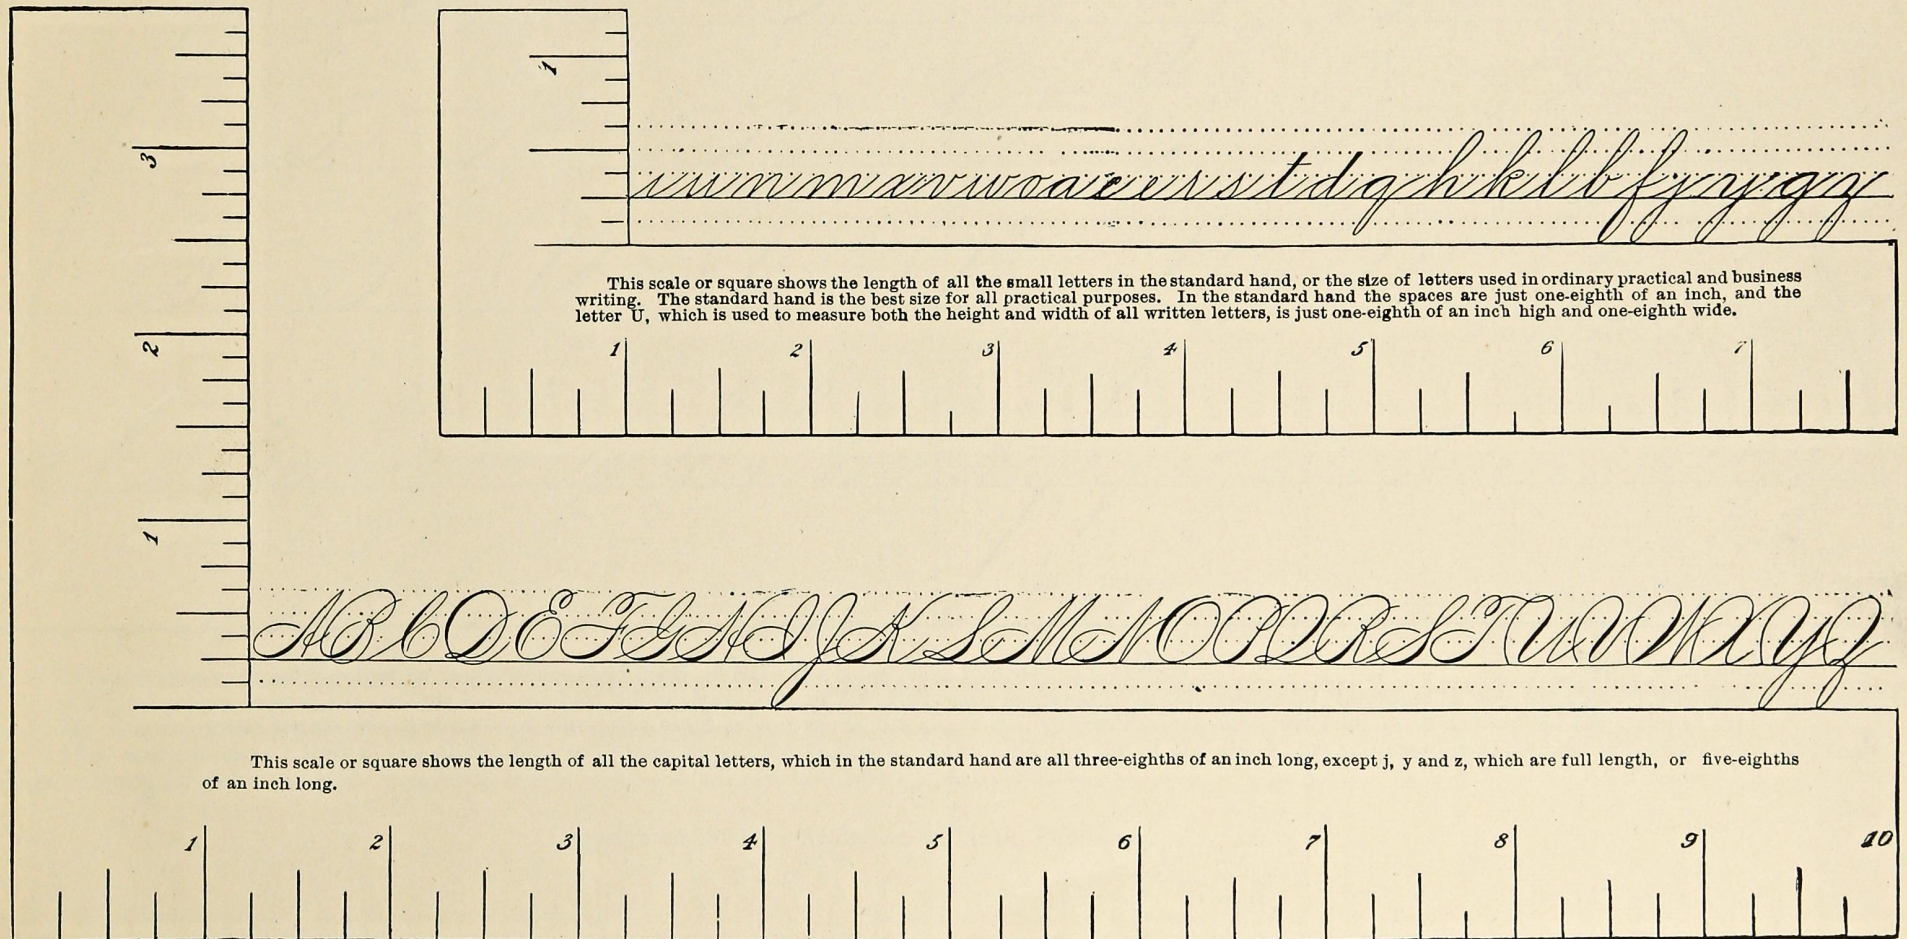 1
i u n m x v w o a c e r s t d q h k l b f j y g z
This scale or square shows the length of all the small letters in the standard hand, or the size of letters used in ordinary practical and business
writing. The standard hand is the best size for all practical purposes. In the standard hand the spaces are just one-eighth of an inch, and the
letter U, which is used to measure both the height and width of all written letters, is just one-eighth of an inch high and one-eighth wide.
1 2 3 4 5 6 7
3
2
1
A B C D E F G H I J K L M N O P Q R S T U V W X Y Z
This scale or square shows the length of all the capital letters, which in the standard hand are all three-eighths of an inch long, except j, y and z, which are full length, or five-eighths
of an inch long.
1 2 3 4 5 6 7 8 9 10